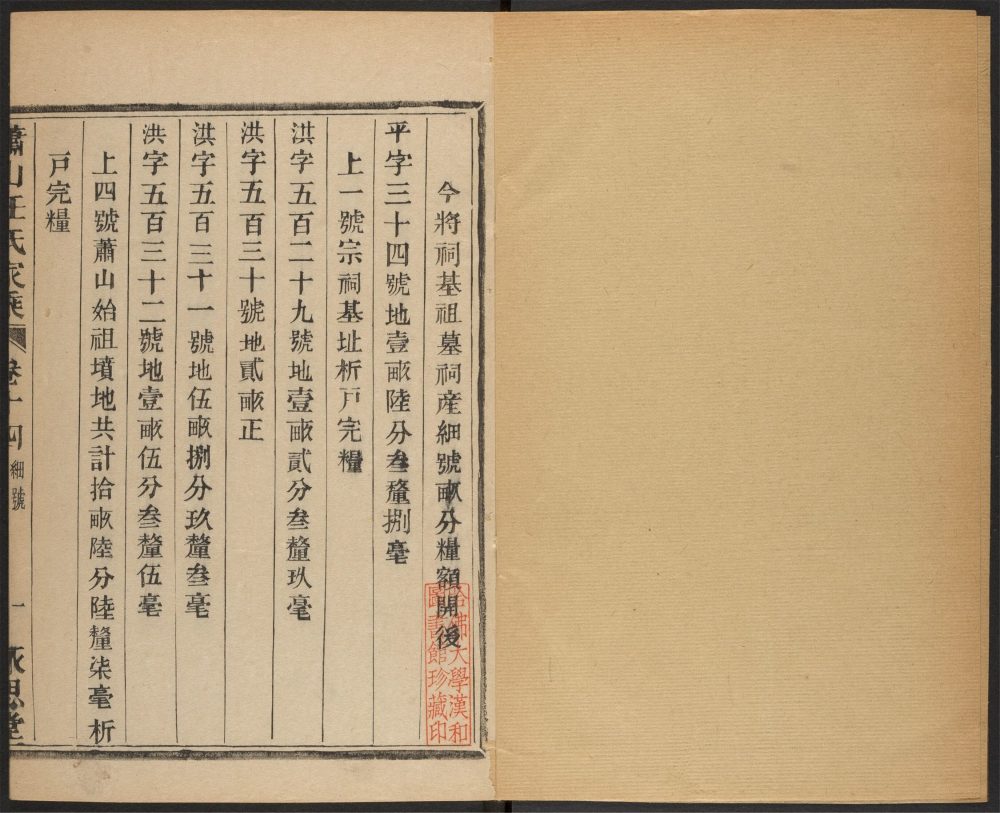 今將祠基祖墓祠産細號畝分糧額開後
平字三十四號地壹畝陸分叁釐捌毫
上一號宗祠基址析戸完糧
洪字五百二十九號地壹畝貳分叁釐玖毫
洪字五百三十號地貳畝正
洪字五百三十一號地伍畝捌分玖釐叁毫
洪字五百三十二號地壹畝伍分叁釐伍毫
上四號蕭山始祖墳地共計拾畝陸分陸釐柒毫析
戸完糧
蕭山王氏家乘 卷十四 細號 一 永思堂
哈佛大學漢和
圖書館珍藏印